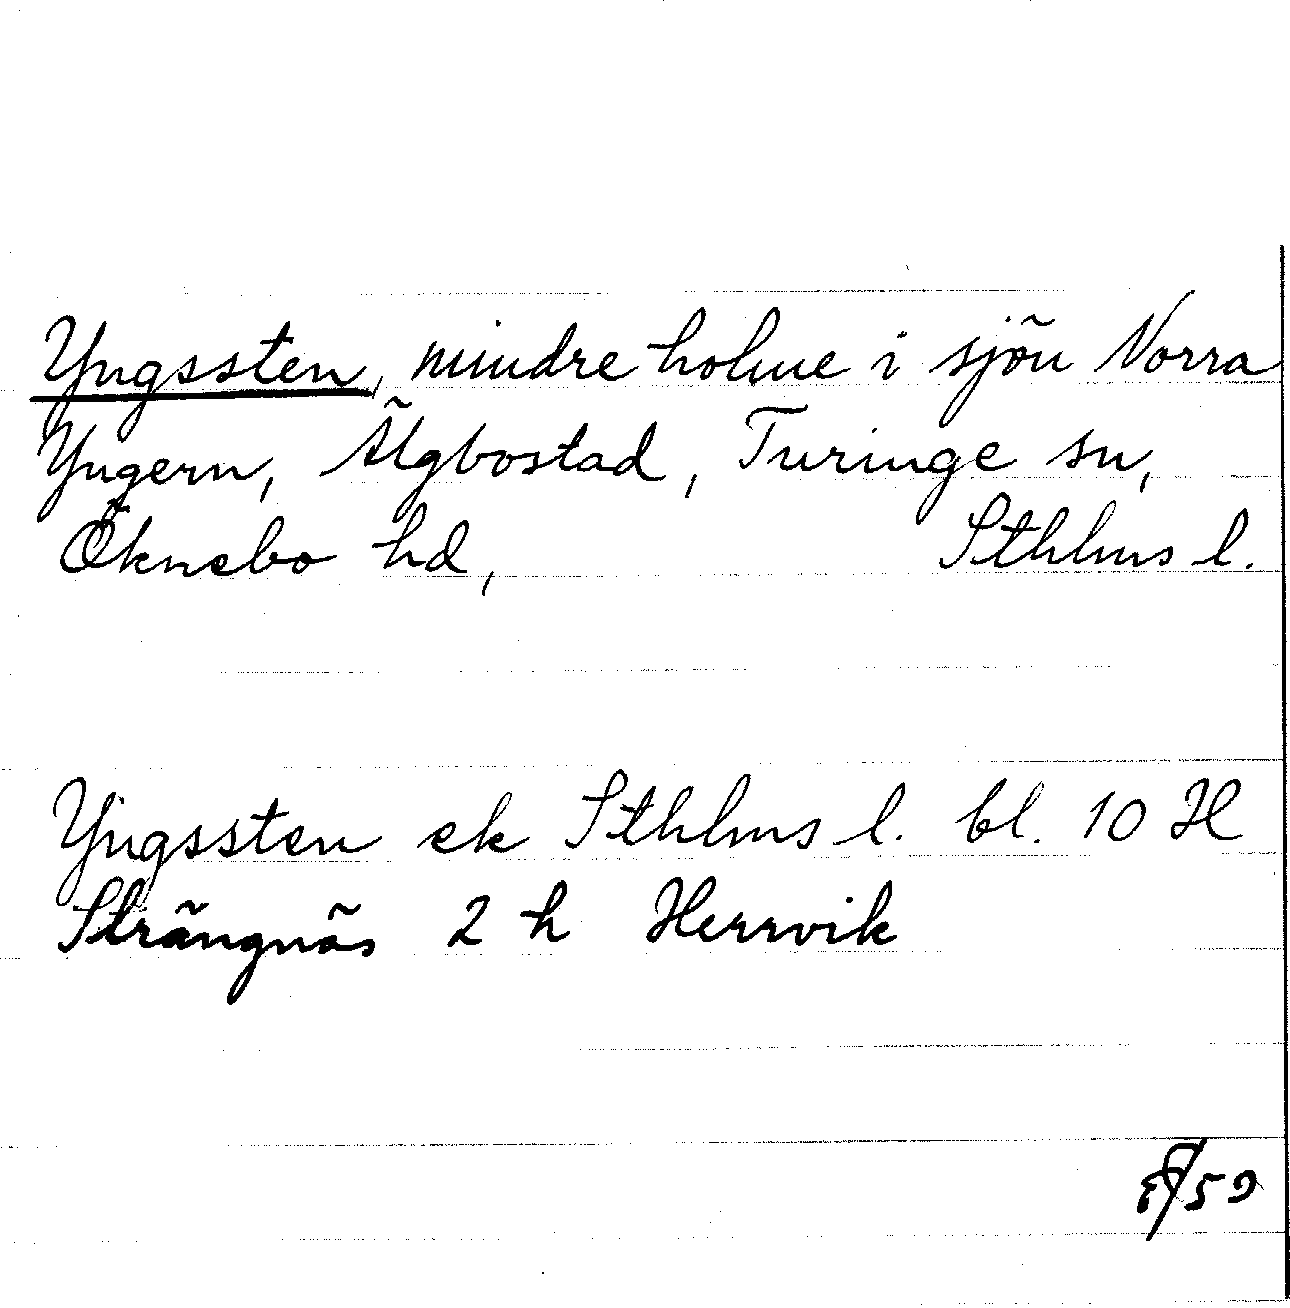 Yngssten, mindre holme i sjön Norra
Yngern, Älgbostad, Turinge sn,
Öknebo hd, Sthlms l.
Yngssten ek Sthlms l. bl. 10 H
Strängnäs 2 h Herrvik
59